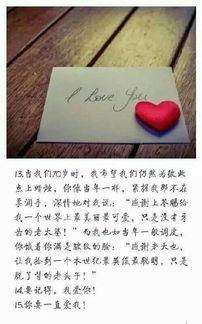 I Love You
13.当我们70岁时,我希望我们仍然为彼此
点上蜡烛,你像当年一样,紧握我那不在
柔润手,深情地对我说:“感谢上苍赐给
我一个世界上最美丽最可爱,只是没有牙
齿的老太婆!”而我也如当年一般调皮,
你倾着你满是皱纹的脸:“感谢老天也,
让我捡到一个本世纪最英俊最聪明,只是
脱了背的老头子!”
14.要记得,我爱你!
15.你要一直爱我!